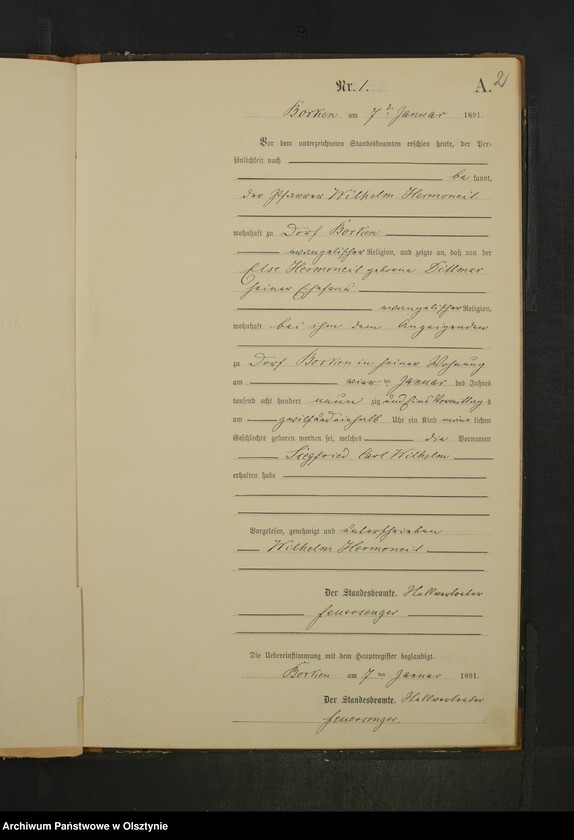 Nr. 1.
A. 2
Borken am 7 ten Januar 1891.
Vor dem unterzeichneten Standesbeamten erschien heute, der Per-
sönlichkeit nach
be kannt,
der Pfarrer Wilhelm Hermoneit
wohnhaft zu Dorf Borken
evangelischer Religion, und zeigte an, daß von der
Else Hermoneit geborne Dittmar
seiner Ehefrau
evangelischer Religion,
wohnhaft bei ihm dem Anzeigenden
zu Dorf Borken in seiner Wohnung
am vier ten Januar des Jahres
tausend acht hundert neun zig und Eins Vormittag s
um zwölfundeinhalb Uhr ein Kind männ lichen
Geschlechts geboren worden sei, welches die Vornamen
Siegfried Carl Wilhelm
erhalten habe
Vorgelesen, genehmigt und unterschrieben
Wilhelm Hermoneit
Der Standesbeamte.
Feuersenger
Die Uebereinstimmung mit dem Hauptregister beglaubigt.
Borken am 7 ten Januar 1891.
Der Standesbeamte.
Feuersenger.
Archiwum Państwowe w Olsztynie